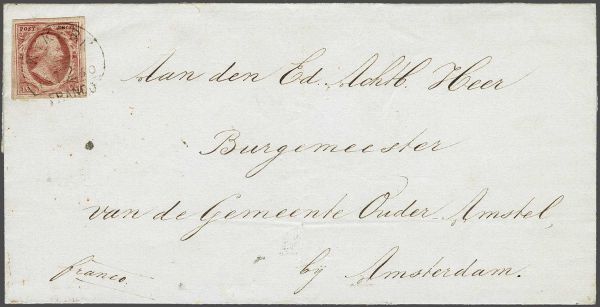 POST
FRANCO
Aan den Ed. Achtb. Heer
Burgemeester
van de Gemeente Ouder-Amstel,
by Amsterdam.
franco.